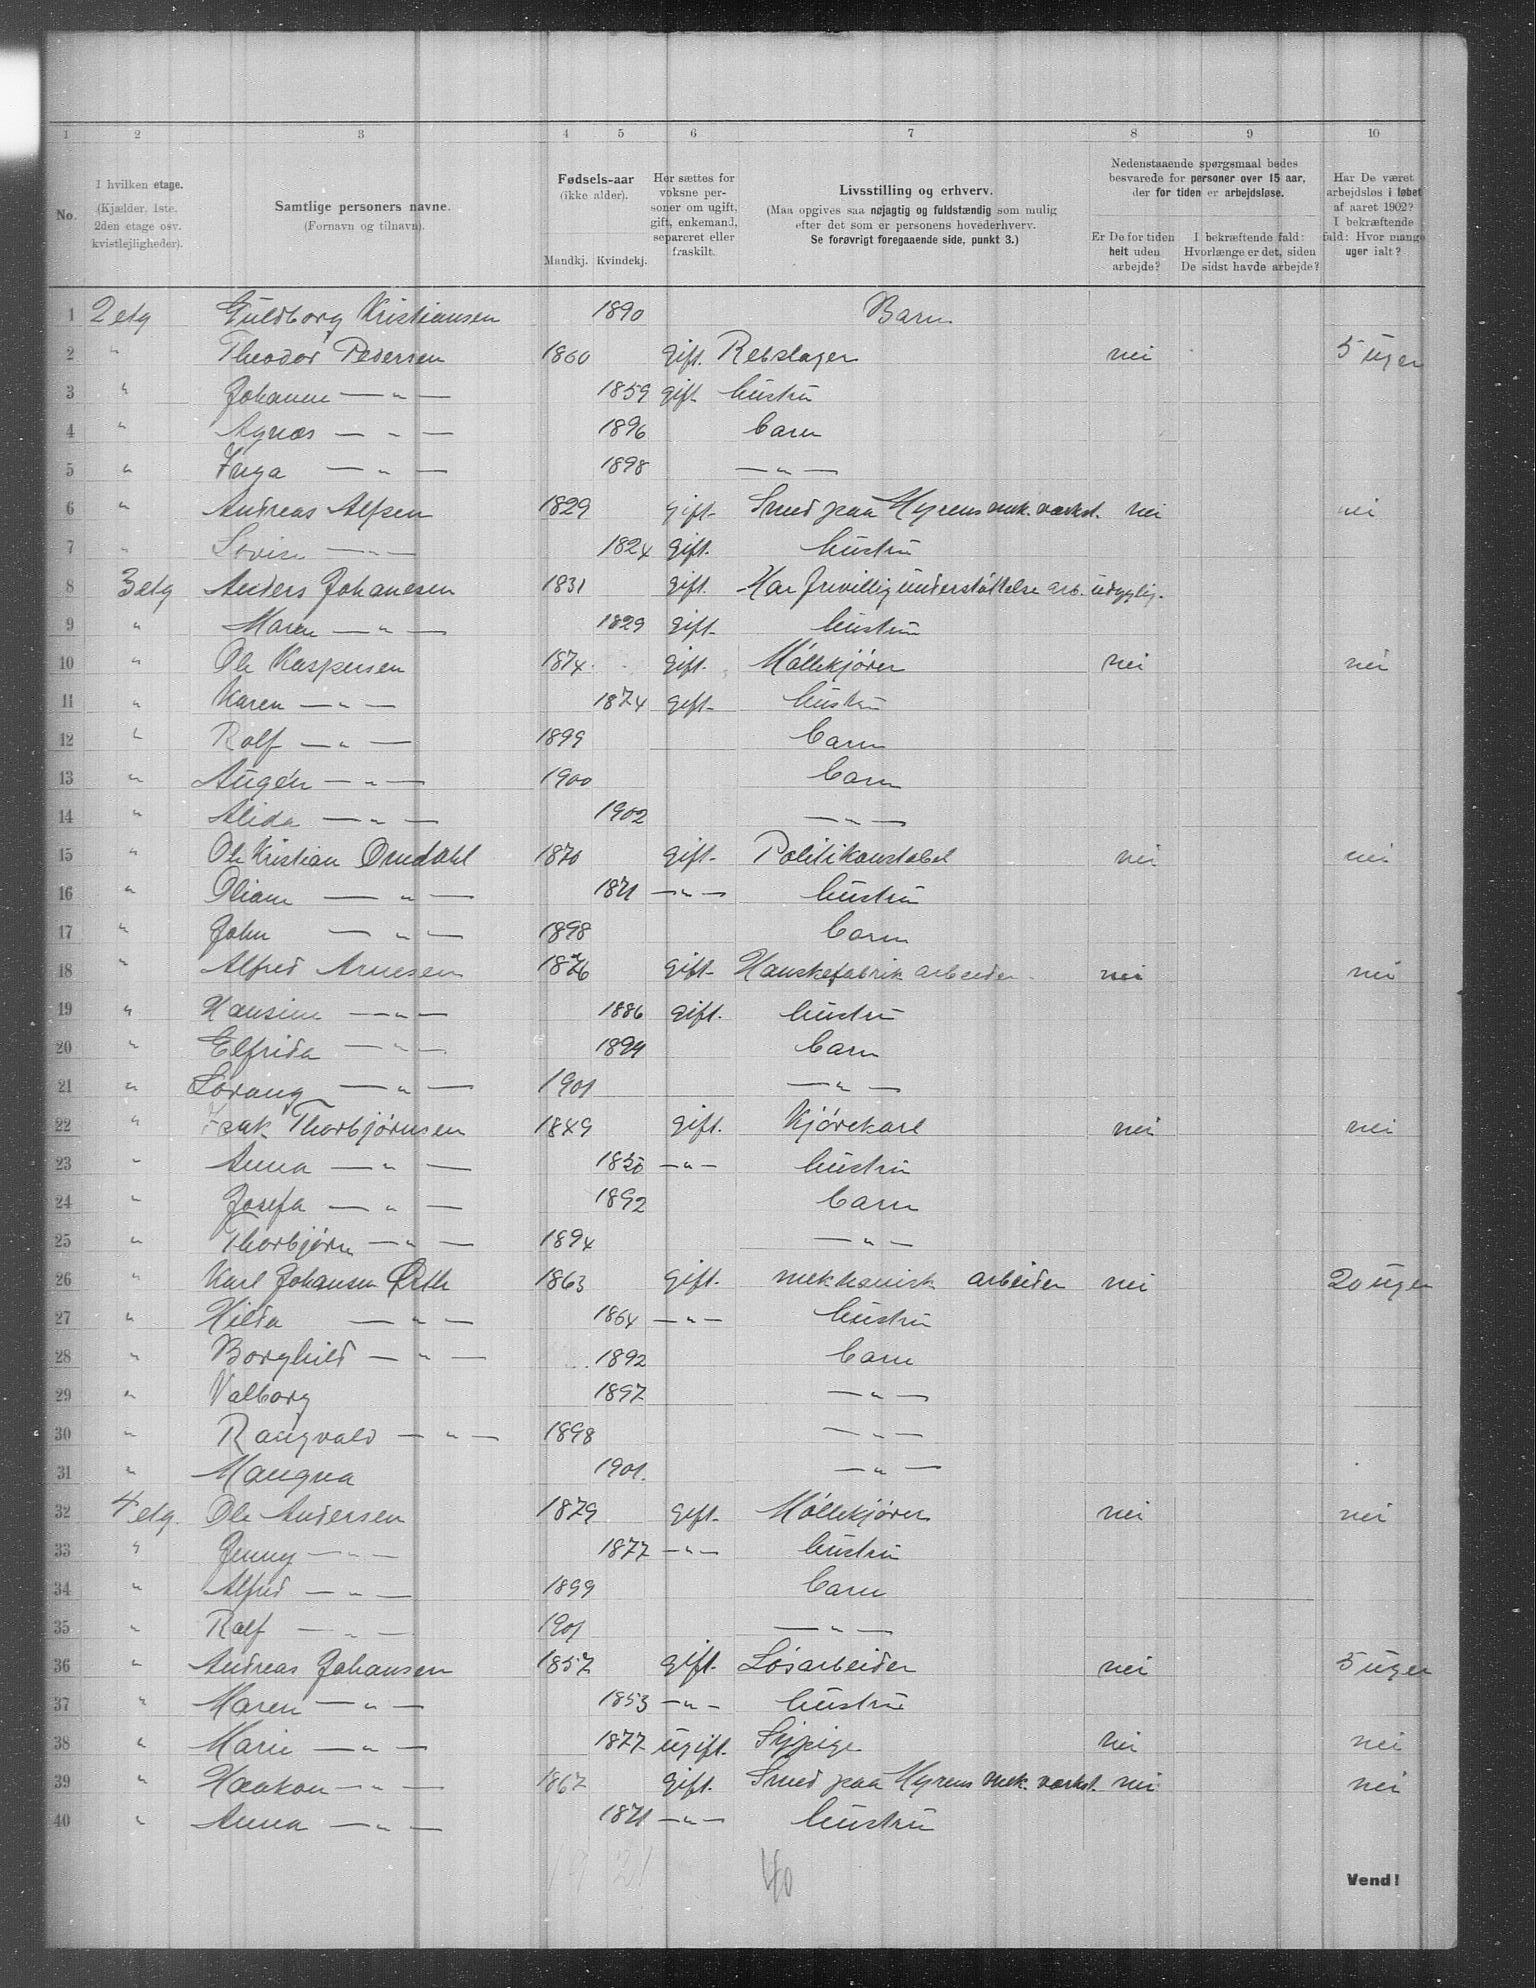 1 2 3 4 5 6 7 8 9 10
No.
I hvilken etage.
(Kjælder, 1ste.
2den etage osv.
kvistlejligheder).
Samtlige personers navne.
(Fornavn og tilnavn).
Fødsels-aar
(ikke alder).
Mandkj. Kvindekj.
Her sættes for
voksne per-
soner om ugift,
gift, enkemand,
separeret eller
fraskilt.
Livsstilling og erhverv.
(Maa opgives saa nøjagtig og fuldstændig som mulig
efter det som er personens hovederhverv.
Se forøvrigt foregaaende side, punkt 3.)
Nedenstaaende spørgsmaal bedes
besvarede for personer over 15 aar,
der for tiden er arbejdsløse.
Er De for tiden
helt uden
arbejde?
I bekræftende fald:
Hvorlænge er det, siden
De sidst havde arbejde?
Har De været
arbejdsløs i løbet
af aaret 1902?
I bekræftende
fald: Hvor mange
uger ialt?
1 2 etg Guldborg Kristiansen 1890 Barn
2 " Theodor Pedersen 1860 gift. Rebslager nei 5 uger
3 " Johanne — " — 1859 gift hustru
4 " Agnæs — " — 1896 barn
5 " Inga — " — 1898 — " —
6 " Andreas Alfsen 1829 gift Smed paa Myrens mek. værkst. nei nei
7 " Lovise — " — 1824 gift. hustru
8 3 etg Anders Johanesen 1831 gift. Har frivillig understøttelse arb. udygtig.
9 " Maren — " — 1829 gift hustru
10 " Ole Kaspersen 1874 gift. Møllekjører nei nei
11 " Karen — " — 1874 gift hustru
12 " Rolf — " — 1899 barn
13 " Augén — " — 1900 barn
14 " Alida — " — 1902 — " —
15 " Ole Kristian Omdahl 1870 gift Politikonstabel nei nei
16 " Oliane — " — 1871 — " — hustru
17 " John — " — 1898 barn
18 " Alfred Arnesen 1876 gift Hanskefabrik arbeider nei nei
19 " Hansine — " — 1886 gift. hustru
20 " Elfrida — " — 1899 barn
21 " Lorang — " — 1901 — " —
22 " Isak Thorbjørnsen 1849 gift. Kjørekarl nei nei
23 " Anna — " — 1850 — " — hustru
24 " Josefa — " — 1892 barn
25 " Thorbjørn — " — 1894 — " —
26 " Karl Johansen Østli 1863 gift. mekkanisk arbeider nei 20 uger
27 " Hilda — " — 1864 — " — hustru
28 " Borghild — " — 1892 barn
29 " Valborg 1897 — " —
30 " Rangvald — " — 1898 — " —
31 " Mangna 1901. — " —
32 4 etg. Ole Andersen 1879 gift. Møllekjører nei nei
33 " Jenny — " — 1877 — " — hustru
34 " Alfred — " — 1899 barn
35 " Ralf — " — 1901 — " —
36 " Andreas Johansen 1857 gift. Løsarbeider nei 5 uger
37 " Maren — " — 1853 — " — hustru
38 " Marie — " — 1877 ugift. Sypige nei nei
39 " Haakon — " — 1867 gift. Smed paa Myrens mek. værkst. nei nei
40 " Anna — " — 1871 — " — hustru
19 21 40
Vend!